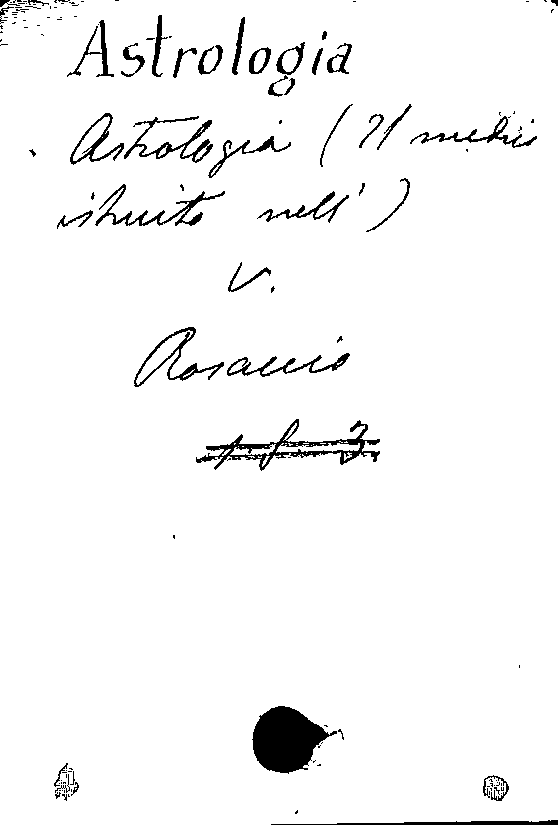 Astrologia
Astrologia (Il medico
istruito nell')
V.
Rosaccio